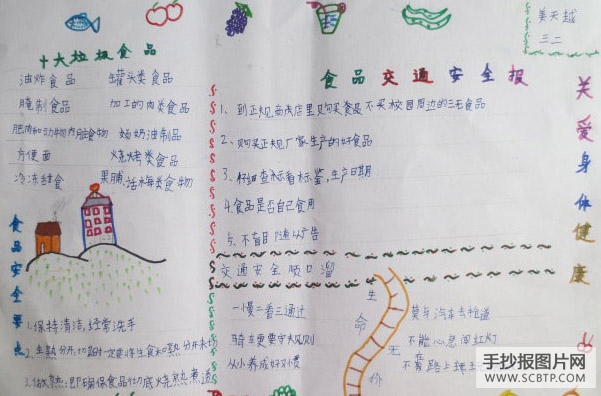 十大垃圾食品
油炸食品 罐头类食品
腌制食品 加工的肉类食品
肥肉和动物内脏食物 奶油制品
方便面 烧烤类食品
冷冻甜食 果脯、话梅类食物
食品安全要点
1.保持清洁,经常洗手
2.生熟分开,切 一定要将生食和熟 分开
3.做熟:即确保食品彻底烧熟煮透
姜天越
三二
食品交通安全报
1、到正规商店里购买食品不买校园周边的三无食品
2、购买正规厂家生产的好食品
3、仔细查标看标鉴,生产日期
4.食品是否自己食用
5、不盲目随从广告
关爱身体健康
交通安全顺口溜
一慢二看三通过
骑车更要守 规则
从小养成好习惯
生命无价
莫与汽车去抢道
不能心急闯红灯
不 路上
手抄报图片网
WWW.SCBTP.COM